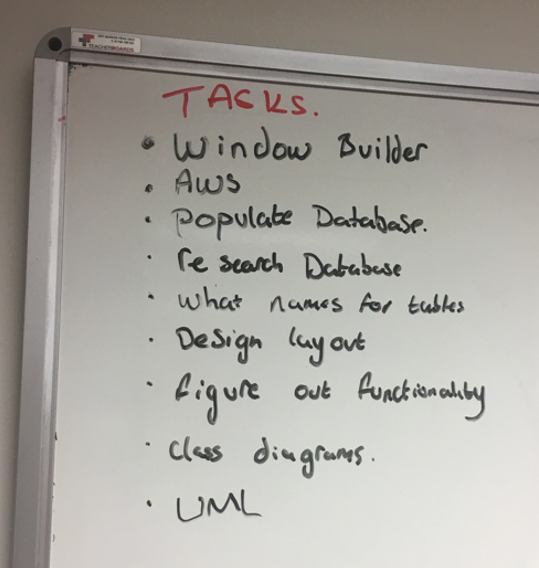 TEACHERBOARDS
TASKS.
• Window Builder
• AWS
• Populate Database.
• research Database
• what names for tables
• Design layout
• figure out functionality
• class diagrams.
• UML